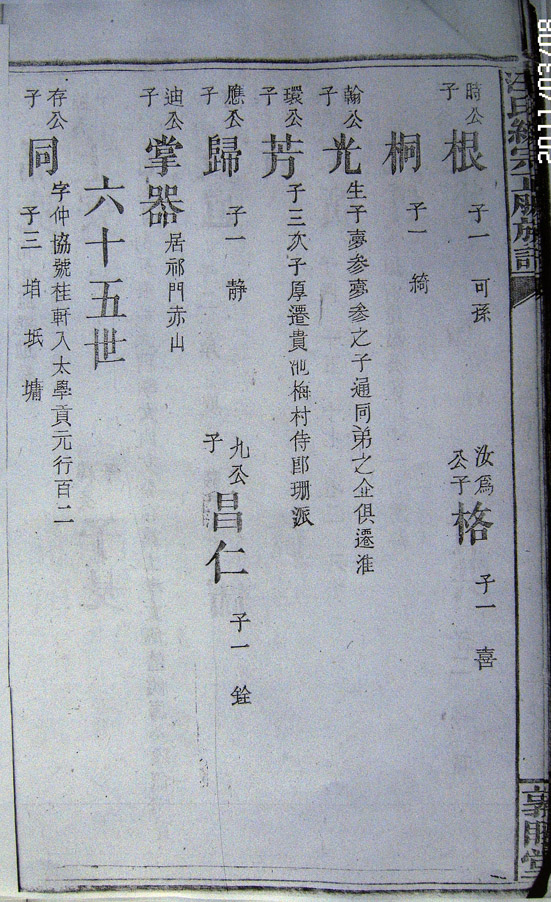 時公子 根 子一 可孫
汝爲公子 格 子一 喜
桐 子一 綺
翰公子 光 生子夢參夢參之子通同弟之金俱遷淮
環公子 芳 子三次子厚遷貴池梅村侍郎珊派
應公子 歸 子一 靜
九公子 昌仁 子一 銓
迪公子 掌器 居祁門赤山
六十五世
存公子 同 字仲協號桂軒入太學貢元行百二
子三 垍 坻 墉
2011/03/08